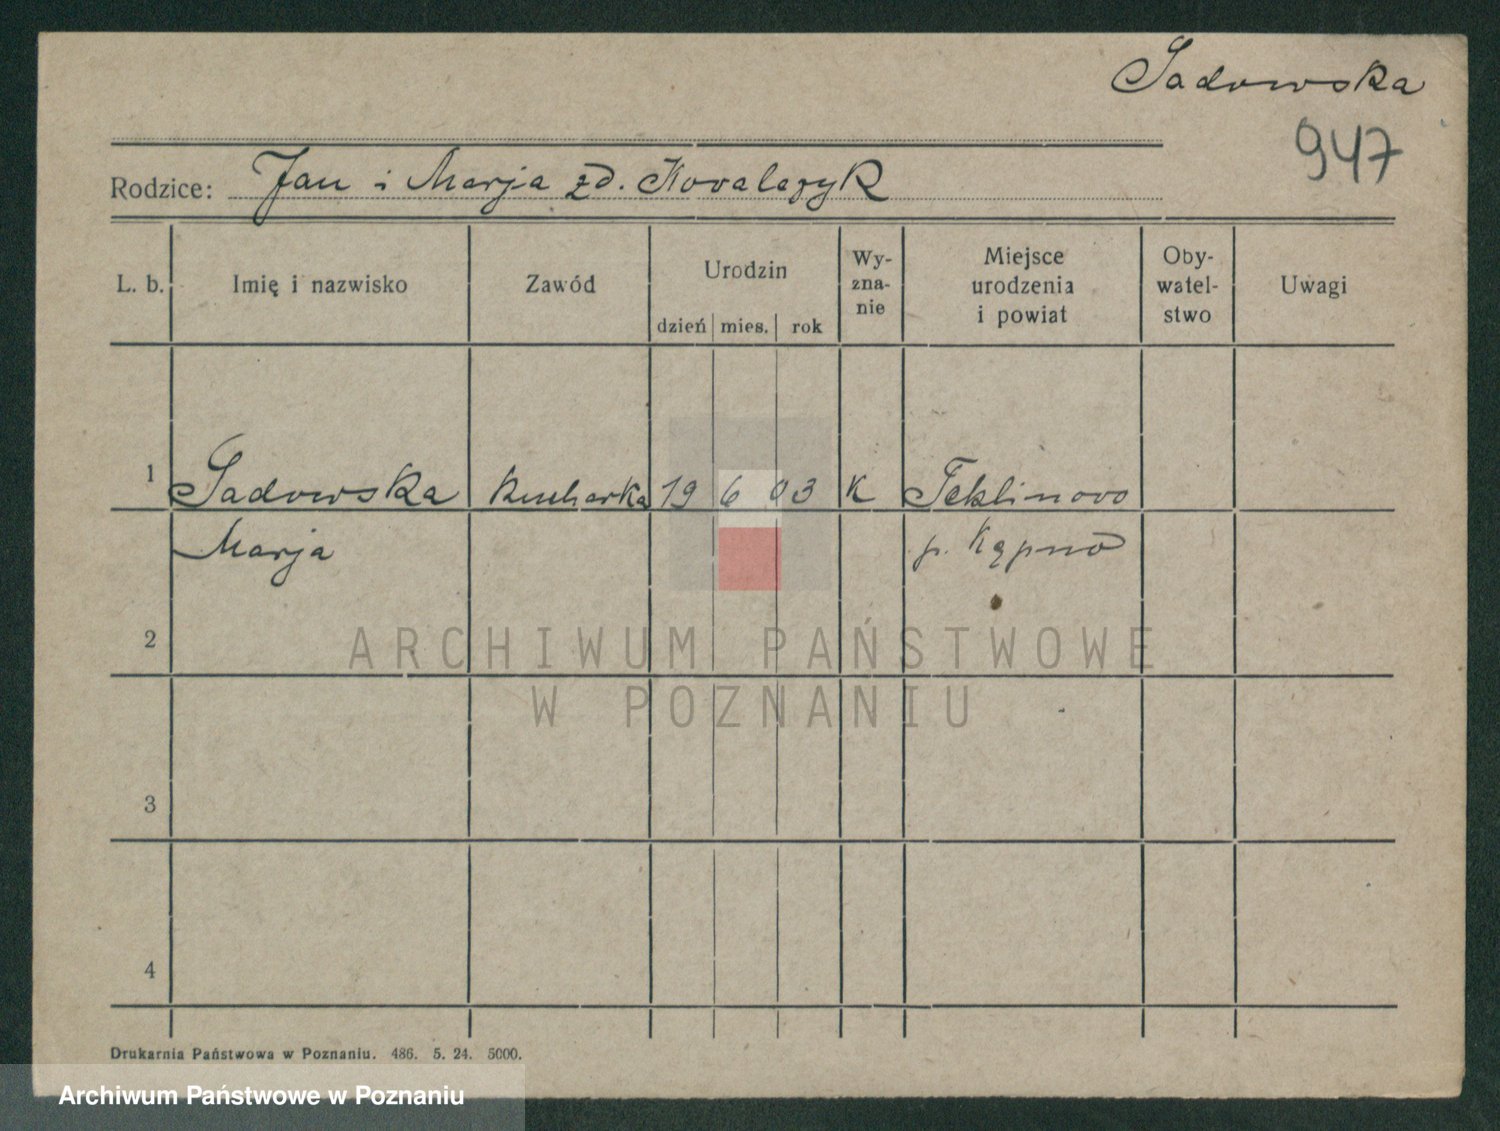 Sadowska
947
Rodzice: Jan i Marja zd. Kowalczyk
L. b. Imię i nazwisko Zawód Urodzin dzień mies. rok Wy- zna- nie Miejsce urodzenia i powiat Oby- watel- stwo Uwagi
1 Sadowska kucharka 19 6 03 K Teklinowo
Marja p. Kępno
2
ARCHIWUM PAŃSTWOWE
W POZNANIU
3
4
Drukarnia Państwowa w Poznaniu. 486. 5. 24. 5000.
Archiwum Państwowe w Poznaniu